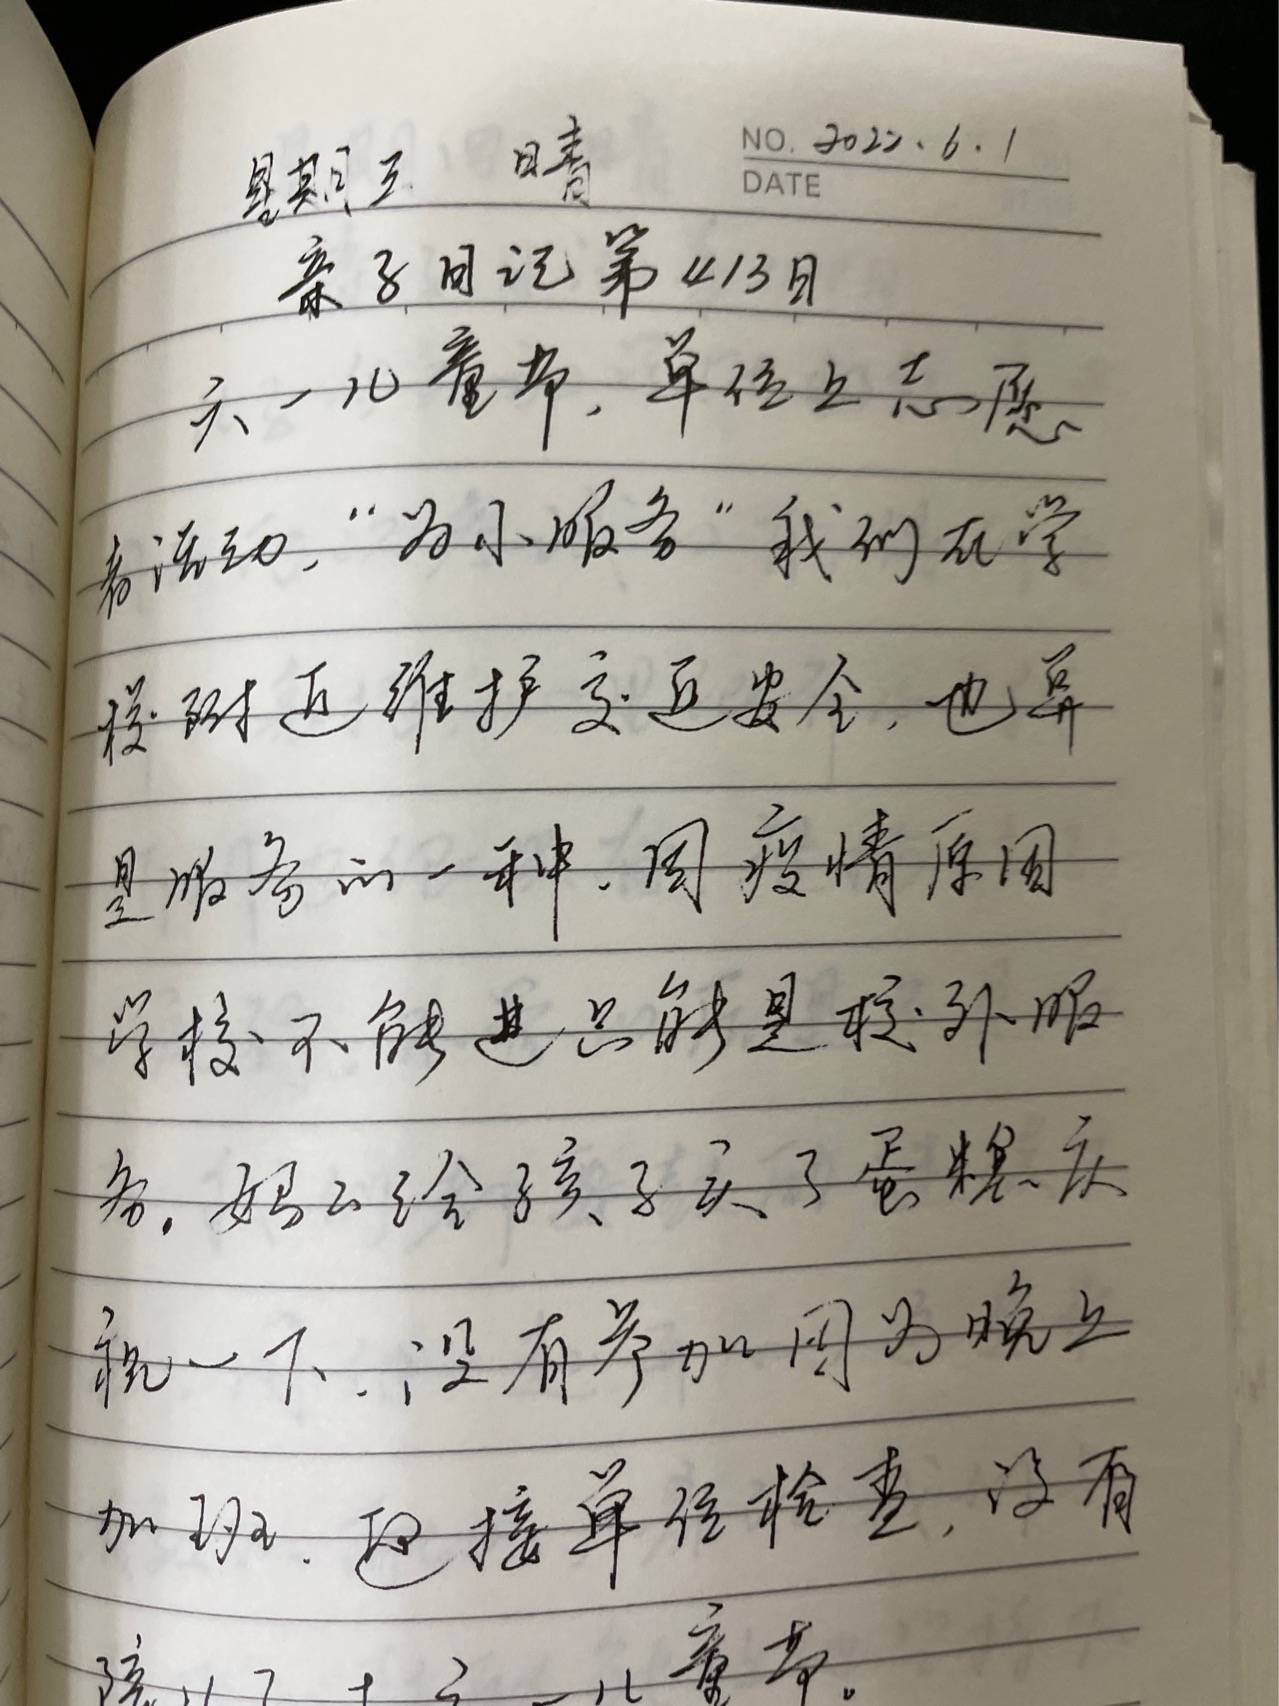 NO. 2022.6.1
DATE
星期三 晴
亲子日记第413日
六一儿童节,单位上志愿
者活动,“为小服务”我们在学
校附近维护交近安全,也算
是服务的一种.因疫情原因
学校不能进只能是校外服
务。妈妈给孩子买了蛋糕庆
祝一下.没有参加因为晚上
加班.迎接单位检查,没有
陪儿子过六一儿童节。